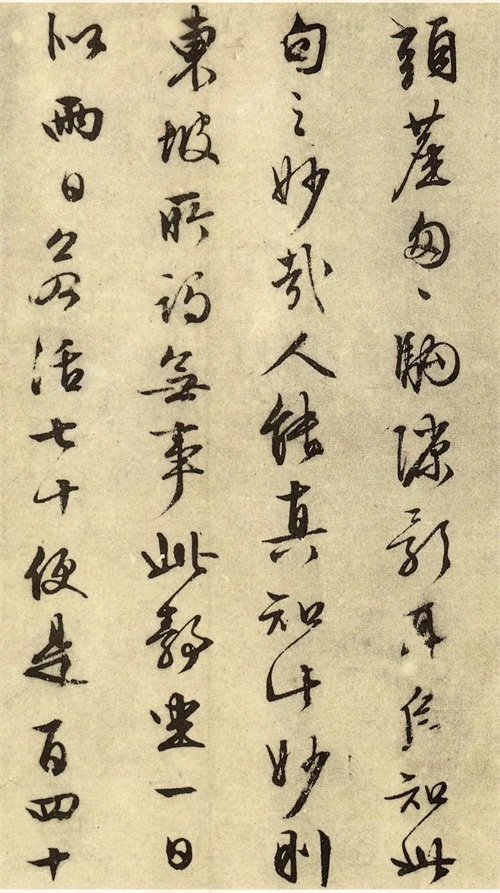 頭塵匆々駒隙影耳信知此
句之妙哉人能真知此妙則
東坡所謂無事此靜坐一日
似兩日若活七十便是百四十